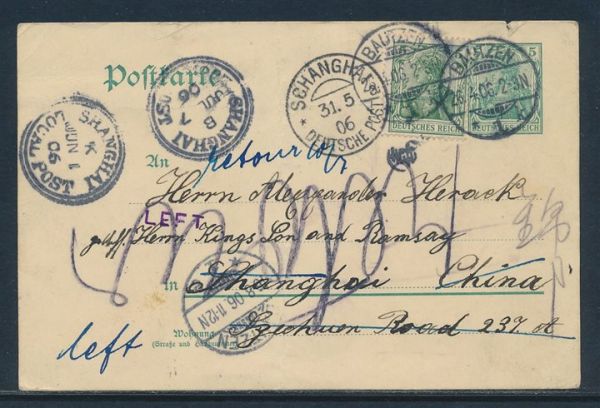 Postkarte
5
BAUTZEN
BAUTZEN
DEUTSCHES REICH
DEUTSCHES REICH
SCHANGHAI
31.5
06
DEUTSCHE POST
SHANGHAI
LOCAL POST
K
JUN 1
06
SHANGHAI
LOCAL POST
06
Retour
An
Herrn Alexander Herack
LEFT
Herrn Kings, Son and Ramsay
in
Shanghai China
06.11-12N
Wohnung
(Straße und Hausnummer)
Szechuen Road 237 A
left